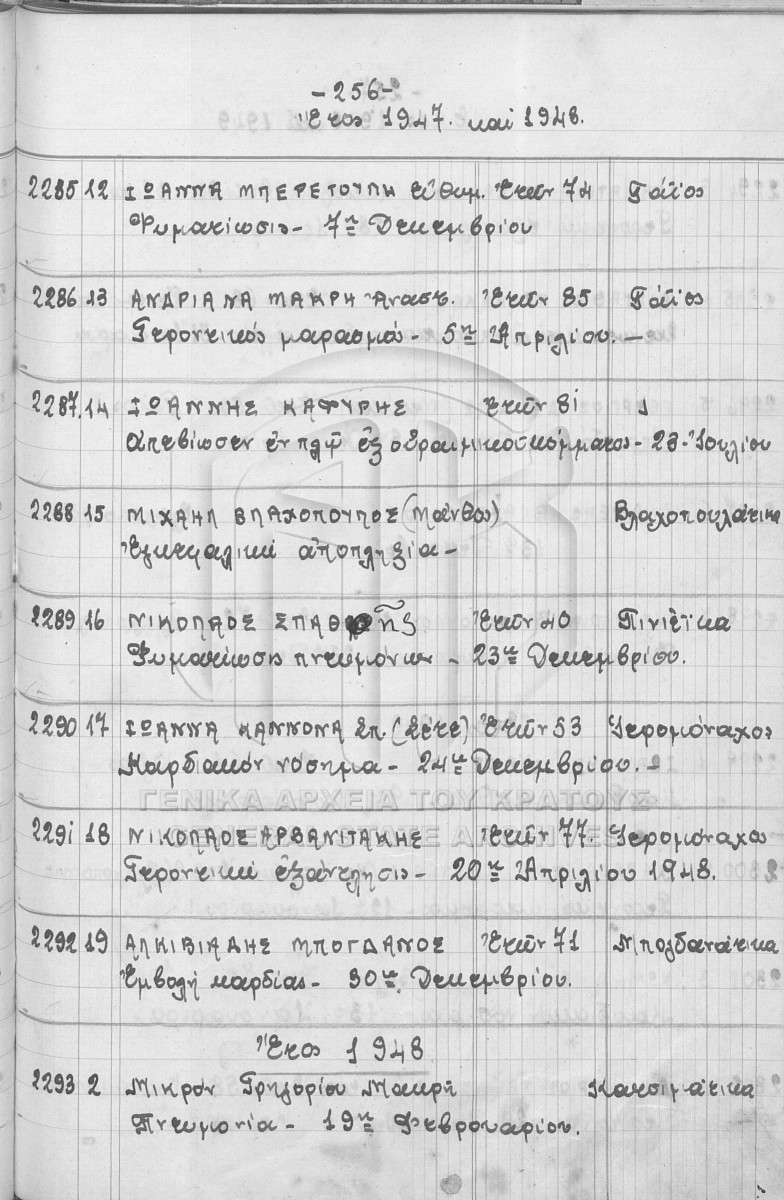 -256-
Ἔτος 1947. καὶ 1948.
2285 12 ΙΩΑΝΝΑ ΜΠΕΡΕΤΟΥΛΗ Εὐθυμ. Ἐτῶν 74 Γάϊος
Φυματίωσις - 7ης Δεκεμβρίου
2286 13 ΑΝΔΡΙΑΝΑ ΜΑΚΡΗ Ἀναστ. Ἐτῶν 85 Γάϊος
Γεροντικός μαρασμός - 5ης Ἀπριλίου. -
2287. 14 ΙΩΑΝΝΗΣ ΚΑΦΥΡΗΣ Ἐτῶν 81
Ἀπεβίωσεν ἐν πλῷ ἐξ - Ἰουλίου
2288 15 ΜΙΧΑΗΛ ΒΛΑΧΟΠΟΥΛΟΣ (Μάνθος) Βλαχοπουλάτικα
Ἐγκεφαλική ἀποπληξία -
2289 16 ΝΙΚΟΛΑΟΣ Ἐτῶν 40 Πινιέϊκα
Φυματίωσις πνευμόνων - 23ης Δεκεμβρίου.
2290 17 ΙΩΑΝΝΑ ΚΑΝΝΟΝΑ Σπ. Ἐτῶν 53 Ἱερομόναχος
Καρδιακόν νόσημα - 24ης Δεκεμβρίου. -
ΓΕΝΙΚΑ ΑΡΧΕΙΑ ΤΟΥ ΚΡΑΤΟΥΣ
2291 18 ΝΙΚΟΛΑΟΣ ΑΡΒΑΝΙΤΑΚΗΣ Ἐτῶν 77. Ἱερομόναχος
Γεροντική ἐξάντλησις - 20ης Ἀπριλίου 1948.
2292 19 ΑΛΚΙΒΙΑΔΗΣ ΜΠΟΓΔΑΝΟΣ Ἐτῶν 71 Μπογδανάτικα
Ἐμβολή καρδίας - 30ης Δεκεμβρίου.
Ἔτος 1948
2293 2 Μικρόν Γρηγορίου Μακρῆ Κατσιμάτικα
Πνευμονία - 19ης Φεβρουαρίου.